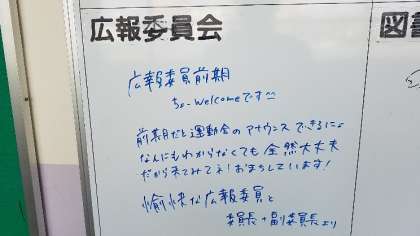 広報委員会
図書
広報委員前期
ちょーwelcomeです
前期だと運動会のアナウンスできるによ
なんにもわからなくても全然大丈夫
だから来てみてネ!おまちしています!
愉快な広報委員と
委員長+副委員長より